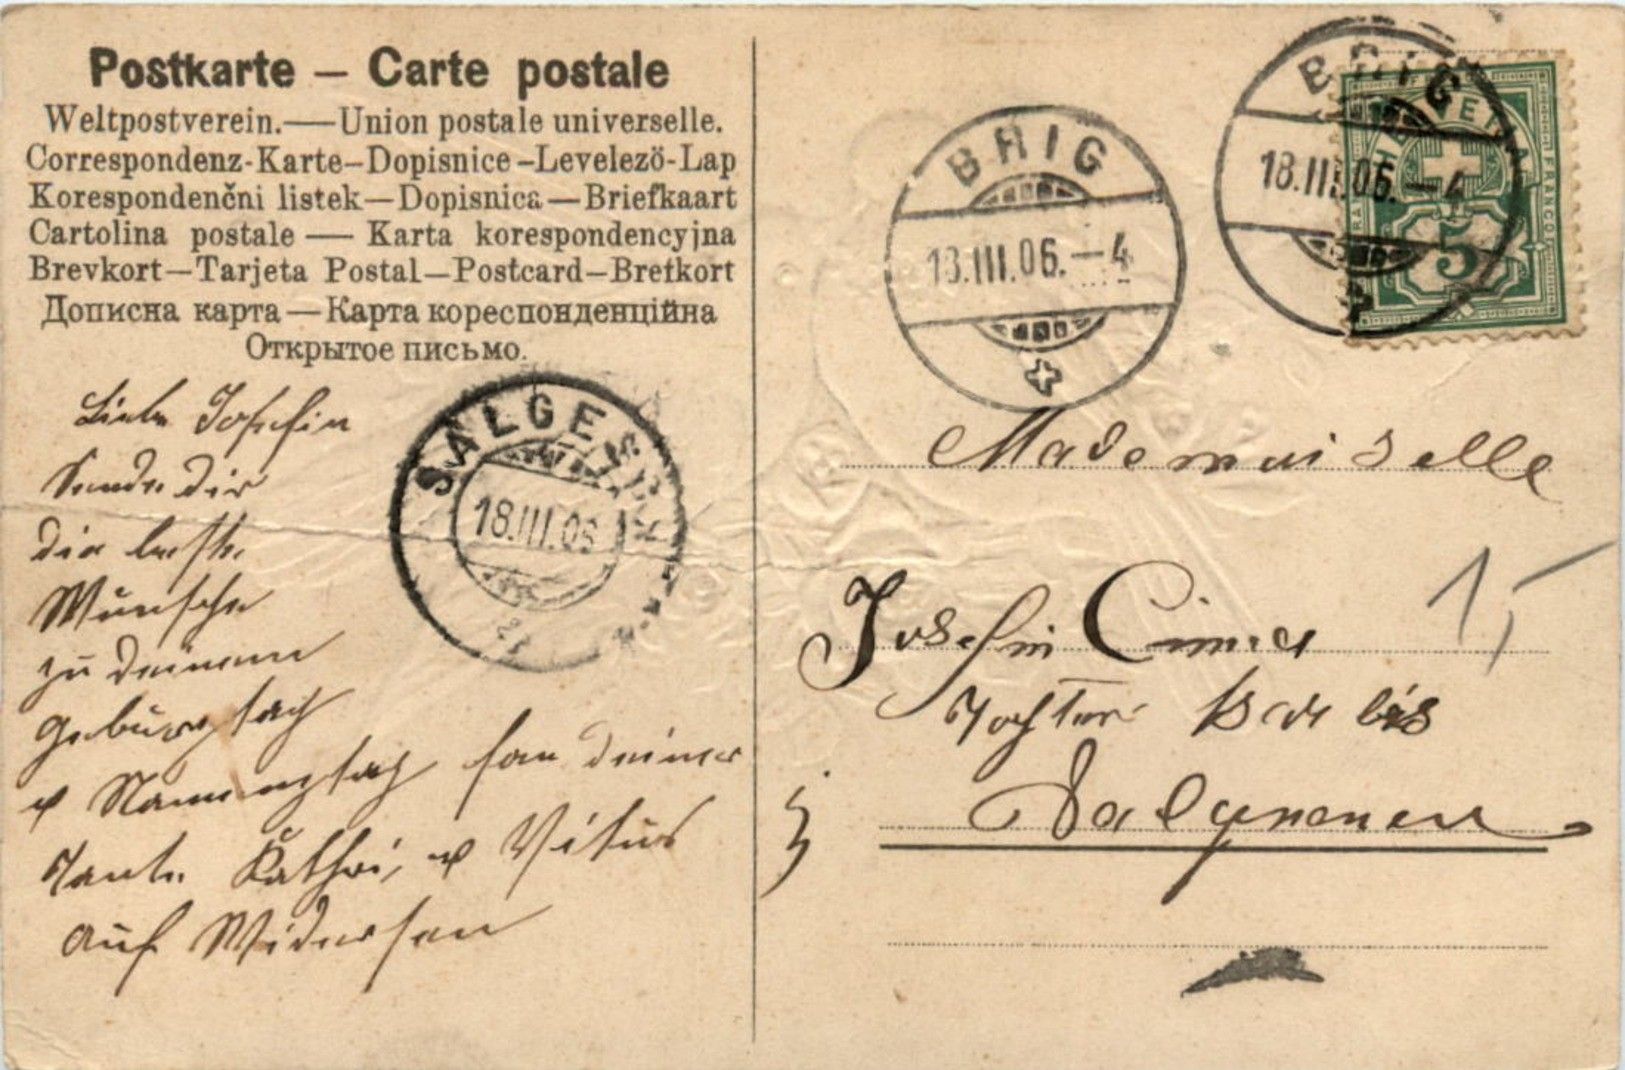 Postkarte – Carte postale
Weltpostverein.—Union postale universelle.
Correspondenz-Karte–Dopisnice–Levelező-Lap
Korespondenčni listek—Dopisnica—Briefkaart
Cartolina postale — Karta korespondencyjna
Brevkort—Tarjeta Postal—Postcard—Bretkort
Дописна карта—Карта кореспонденційна
Открытое письмо.
Liebe Josefin
Sende dir
die beste
Wünsche
zu deinem
Geburtstag
u Namenstag fon deiner
Tante Kathri, u Vitus
auf Widersen
SALGE
18.III.06
BRIG
18.III.06.–4
BRIG
18.III.06.–4
HELVETIA
FRANCO
5
Mademoiselle
Josefin
Tochter
15